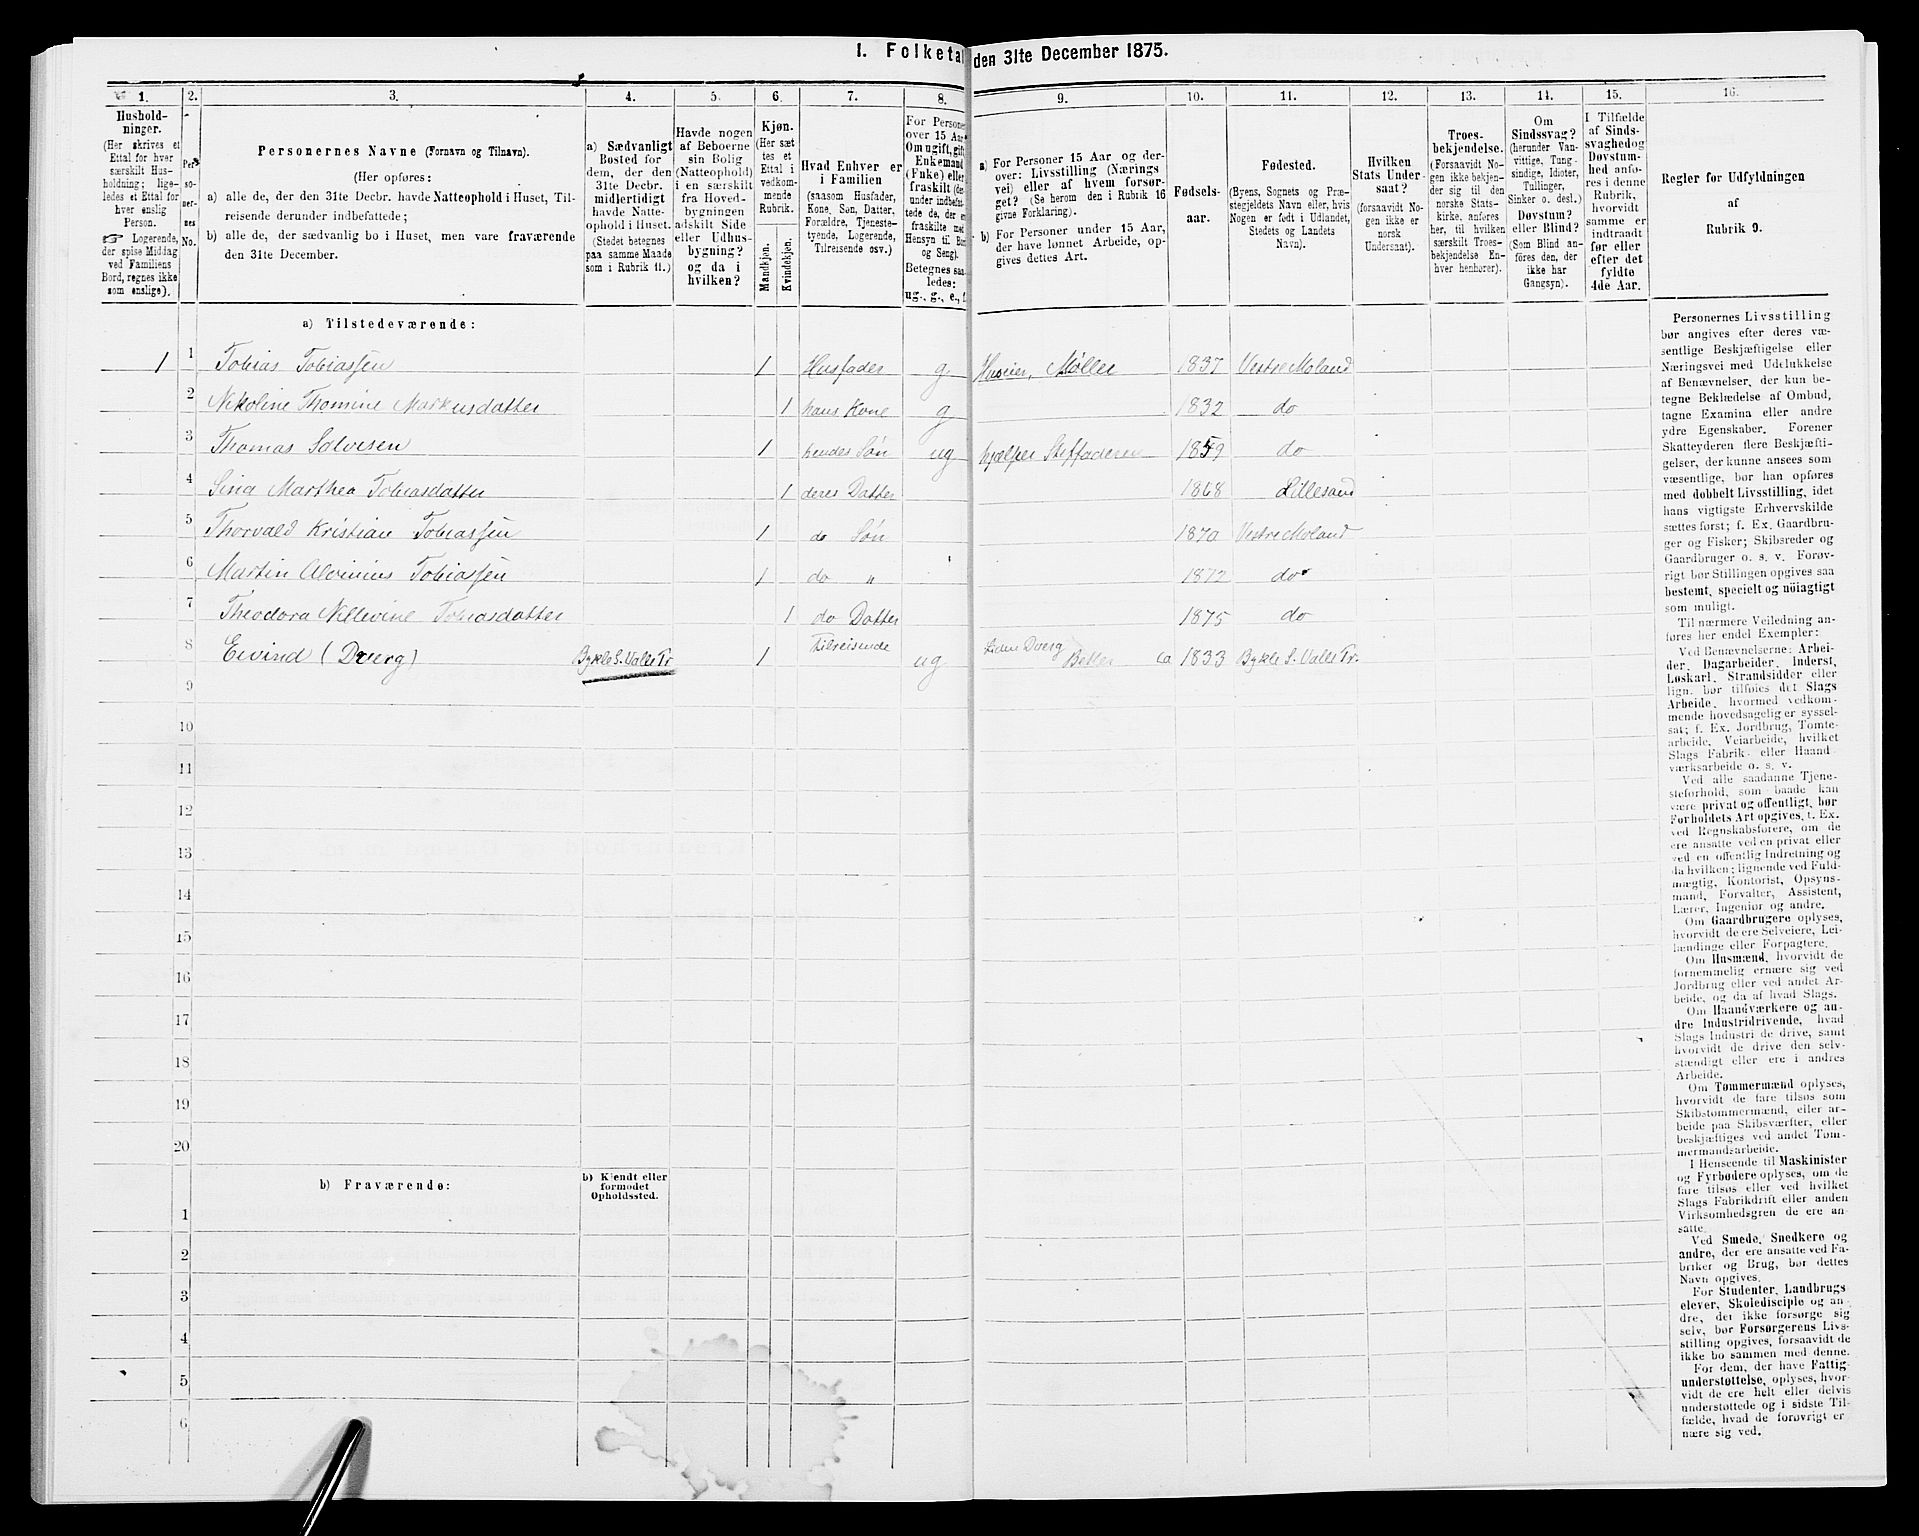 I. Folketal den 31te December 1875.
1. 2. 3. 4. 5. 6. 7. 8. 9. 10. 11. 12. 13. 14. 15. 16.
Hushold-
ninger.
(Her skrives et
Ettal for hver
særskilt Hus-
holdning; lige-
ledes et Ettal for
hver enslig
Person.
☞ Logerende,
der spise Middag
ved Familiens
Bord, regnes ikke
som enslige).
Per-
so-
ner-
nes
No.
Personernes Navne (Fornavn og Tilnavn).
(Her opføres:
a) alle de, der den 31te Decbr. havde Natteophold i Huset, Til-
reisende derunder indbefattede;
b) alle de, der sædvanlig bo i Huset, men vare fraværende
den 31te December.
a) Sædvanligt
Bosted for
dem, der den
31te Decbr.
midlertidigt
havde Natte-
ophold i Huset.
(Stedet betegnes
paa samme Maade
som i Rubrik 11.)
Havde nogen
af Beboerne
sin Bolig
(Natteophold)
i en særskilt
fra Hoved-
bygningen
adskilt Side
eller Udhus-
bygning?
og da i
hvilken?
Kjøn.
(Her sæt-
tes et
Ettal i
vedkom-
mende
Rubrik.
Mandkjøn.
Kvindekjøn.
Hvad Enhver er
i Familien
(saasom Husfader,
Kone, Søn, Datter,
Forældre, Tjeneste-
tyende, Logerende,
Tilreisende osv.)
For Personer
over 15 Aar:
Om ugift, gift,
Enkemand
(Enke) eller
fraskilt (der-
under indbefat-
tede de, der ere
fraskilte med
Hensyn til Bord
og Seng).
Betegnes saa-
ledes:
ug., g., e., f.
a) For Personer 15 Aar og der-
over: Livsstilling (Nærings-
vei) eller af hvem forsør-
get? (Se herom den i Rubrik 16
givne Forklaring).
b) For Personer under 15 Aar,
der have lønnet Arbeide, op-
gives dettes Art.
Fødsels-
aar.
Fødested.
(Byens, Sognets og Præ-
stegjeldets Navn eller, hvis
Nogen er født i Udlandet,
Stedets og Landets
Navn).
Hvilken
Stats Under-
saat?
(forsaavidt No-
gen ikke er
norsk
Undersaat).
Troes-
bekjendelse.
(Forsaavidt No-
gen ikke bekjen-
der sig til den
norske Stats-
kirke, anføres
her, til hvilken
særskilt Troes-
bekjendelse En-
hver henhører).
Om
Sindssvag?
(herunder Van-
vittige, Tung-
sindige, Idioter,
Tullinger,
Sinker o. desl.)
Døvstum?
eller Blind?
(Som Blind an-
føres den, der
ikke har
Gangsyn).
I Tilfælde
af Sinds-
svaghed og
Døvstum-
hed anfø-
res i denne
Rubrik,
hvorvidt
samme er
indtraadt
før eller
efter det
fyldte
4de Aar.
Regler for Udfyldningen
af
Rubrik 9.
a) Tilstedeværende:
1 1 Tobias Tobiassen 1 Husfader g Huseier, Møller 1837 Vestre Moland
2 Nikoline Thomine Markusdatter 1 hans Kone g 1832 do
3 Thomas Solvesen 1 hendes Søn ug hjælper Stiffaderen 1859 do
4 Sina Marthea Tobiasdatter 1 deres Datter 1868 Lillesand
5 Thorvald Kristian Tobiassen 1 do Søn 1870 Vestre Moland
6 Martin Alvinius Tobiassen 1 do " 1872 do
7 Theodora Nillevine Tobiasdatter 1 do Datter 1875 do
8 Eivind (Dverg) Bykle S. Valle Pr. 1 Tilreisende ug Liden Dverg Betler ca 1833 Bykle S. Valle Pr.
9
10
11
12
13
14
15
16
17
18
19
20
b) Fraværende:
b) Kjendt eller
formodet
Opholdssted.
1
2
3
4
5
6
Personernes Livsstilling
bør angives efter deres væ-
sentlige Beskjæftigelse eller
Næringsvei med Udelukkelse
af Benævnelser, der kun be-
tegne Beklædelse af Ombud,
tagne Examina eller andre
ydre Egenskaber. Forener
Skatteyderen flere Beskjæfti-
gelser, der kunne ansees som
væsentlige, bør han opføres
med dobbelt Livsstilling, idet
hans vigtigste Erhvervskilde
sættes først; f. Ex. Gaardbru-
ger og Fisker; Skibsreder og
Gaardbruger o. s. v. Forøv-
rigt bør Stillingen opgives saa
bestemt, specielt og nöiagtigt
som muligt.
Til nærmere Veiledning an-
føres her endel Exempler:
Ved Benævnelserne: Arbei-
der, Dagarbeider, Inderst,
Løskarl, Strandsidder eller
lign. bør tilføies det Slags
Arbeide, hvormed vedkom-
mende hovedsagelig er syssel-
sat; f. Ex. Jordbrug, Tomte-
arbeide, Veiarbeide, hvilket
Slags Fabrik- eller Haand-
værksarbeide o. s. v.
Ved alle saadanne Tjene-
steforhold, som baade kan
være privat og offentligt, bør
Forholdets Art opgives, t. Ex.
ved Regnskabsførere, om de
ere ansatte ved en privat eller
ved en offentlig Indretning og
da hvilken; lignende ved Fuld-
mægtig, Kontorist, Opsyns-
mand, Forvalter, Assistent,
Lærer, Ingeniør og andre.
Om Gaardbrugere oplyses,
hvorvidt de ere Selveiere, Lei-
lændinge eller Forpagtere.
Om Husmænd, hvorvidt de
fornemmelig ernære sig ved
Jordbrug eller ved andet Ar-
beide, og da af hvad Slags.
Om Haandværkere og an-
dre Industridrivende, hvad
Slags Industri de drive, samt
hvorvidt de drive den selv-
stændigt eller ere i andres
Arbeide.
Om Tømmermænd oplyses,
hvorvidt de fare tilsøs som
Skibstømmermænd, eller ar-
beide paa Skibsværfter, eller
beskjæftiges ved andet Tøm-
mermandsarbeide.
I Henseende til Maskinister
og Fyrbødere oplyses, om de
fare tilsøs eller ved hvilket
Slags Fabrikdrift eller anden
Virksomhedsgren de ere an-
satte.
Ved Smede, Snedkere og
andre, der ere ansatte ved Fa-
briker og Brug, bør dettes
Navn opgives.
For Studenter, Landbrugs-
elever, Skoledisciple og an-
dre, der ikke forsørge sig
selv, bør Forsørgerens Livs-
stilling opgives, forsaavidt de
ikke bo sammen med denne.
For dem, der have Fattig-
understøttelse, oplyses, hvor-
vidt de ere helt eller delvis
understøttede og i sidste Til-
fælde, hvad de forøvrigt er-
nære sig ved.